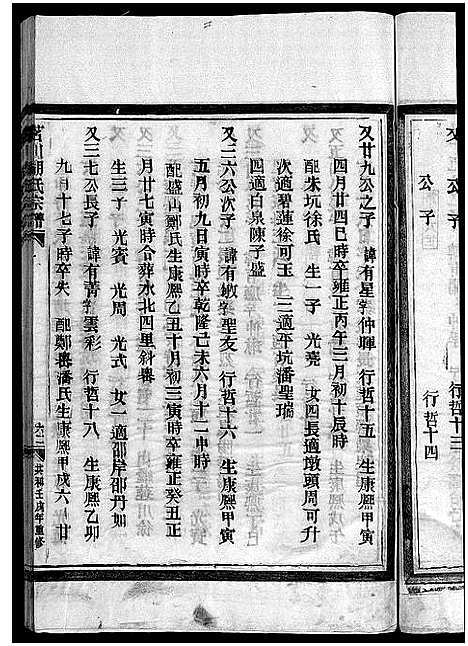 公子
行哲十三
公子
行哲十四
又廿九公之子 諱有星字仲暉 行哲十五 生康熙甲寅
四月廿四巳時卒雍正丙午三月初十辰時
配朱坑徐氏 生一子 光堯 女四長適墩頭周可升
次適碧蓮徐可玉 三適平坑潘聖瑞
四適白泉陳子盛
又二六公次子 諱有蛟字聖友 行哲十六 生康熙甲寅
五月初九日寅時卒乾隆己未六月十一申時
配盛山鄭氏生康熙乙丑十月初三寅時卒雍正癸丑正
月廿七寅時合葬水北四里斜嶴
生三子 光賓 光周 光式 女一適邵岸邵丹如
又三七公長子 諱有菁字雲彩 行哲十八 生康熙乙卯
九月十七子時卒失 配鄭嶴潘氏生康熙甲戌六月廿
川胡氏宗譜
六二
共和壬戌年重修